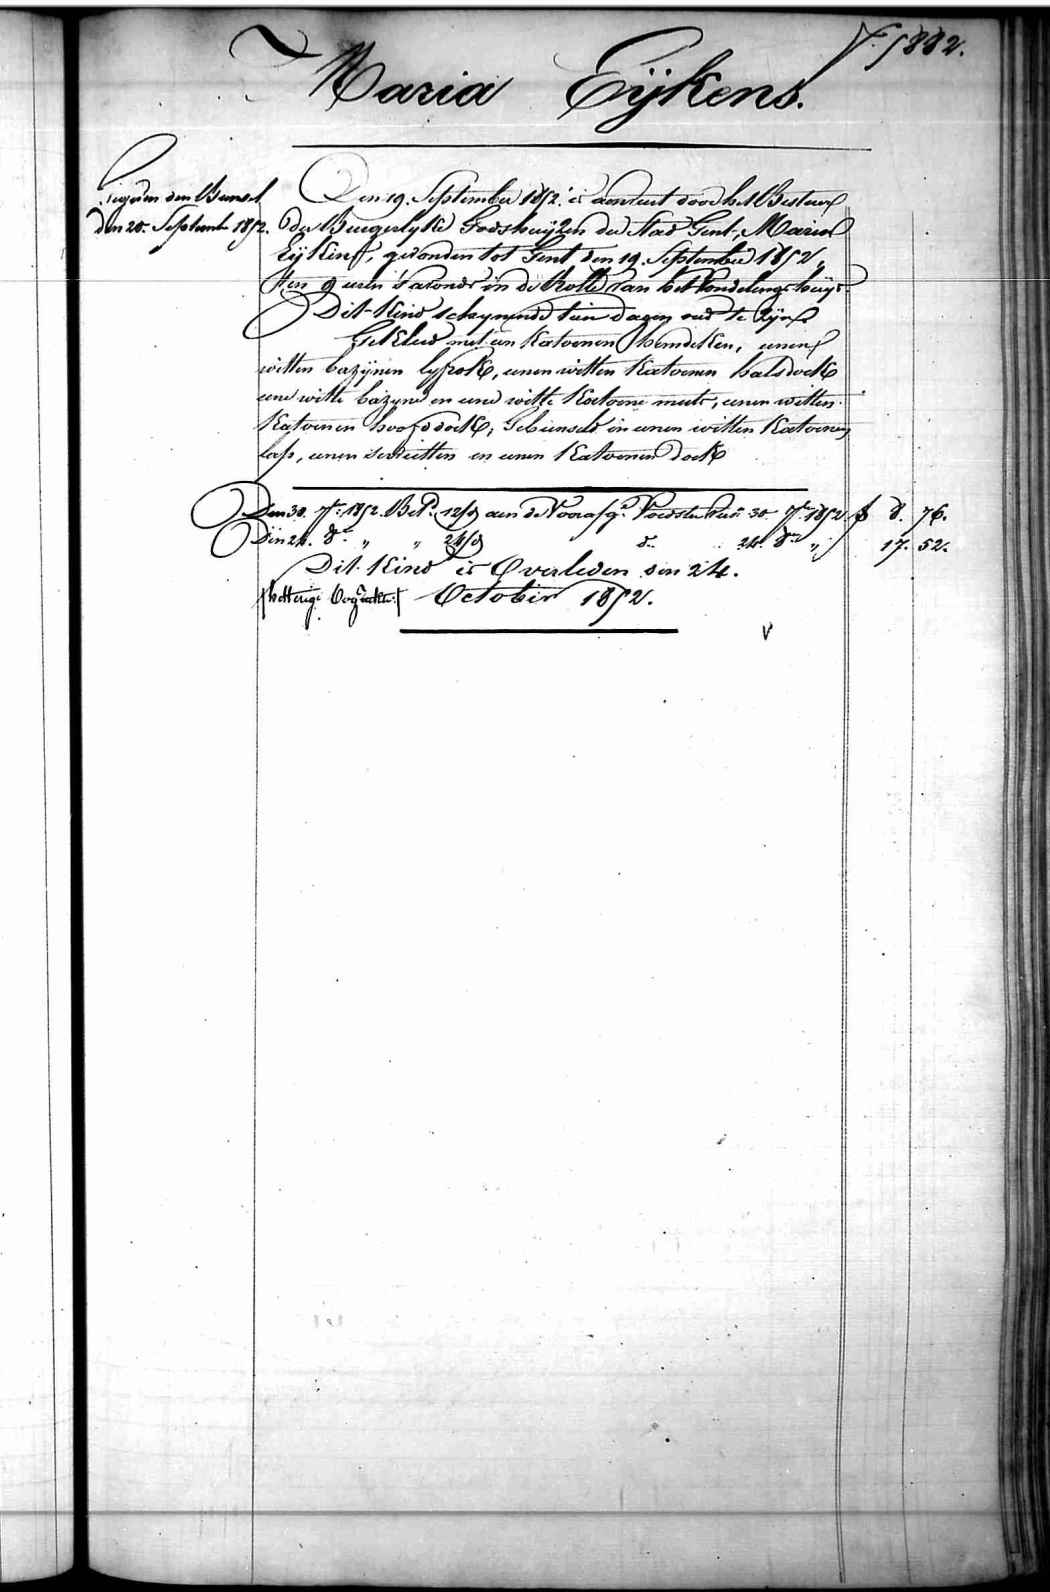 V. 5882.
Maria Eÿkens.
den 20. Septemb. 1852.
Den 19. September 1852. is aenveirt door het Bestuer
der Burgerlyke Godshuÿzen der Stad Gent, Maria
Eÿkens, gevonden tot Gent den 19. September 1852,
ten 9 uren 's avonds in de Rolle van het Vondelingshuÿs.
Dit Kind scheynende tien dagen oud te zÿn
Gekleed met een Katoenen hemdeken, eenen
witten bazÿnen lyfrok, eenen witten Katoenen halsdoek
eene witte bazyne en eene witte Katoene muts, eenen witten
Katoenen hoofddoek, Gebunseld in eenen witten Katoenen
lap, eenen servietten en eenen Katoenen doek
Den 30. 7bre 1852. Betd. 12/9 aen de Voorafgde Voedster 30. 7bre 1852 f 8. 76.
Den 24. do „ „ 24/9 do 24. do „ 17. 52.
Dit Kind is Overleden den 24.
October 1852.
V